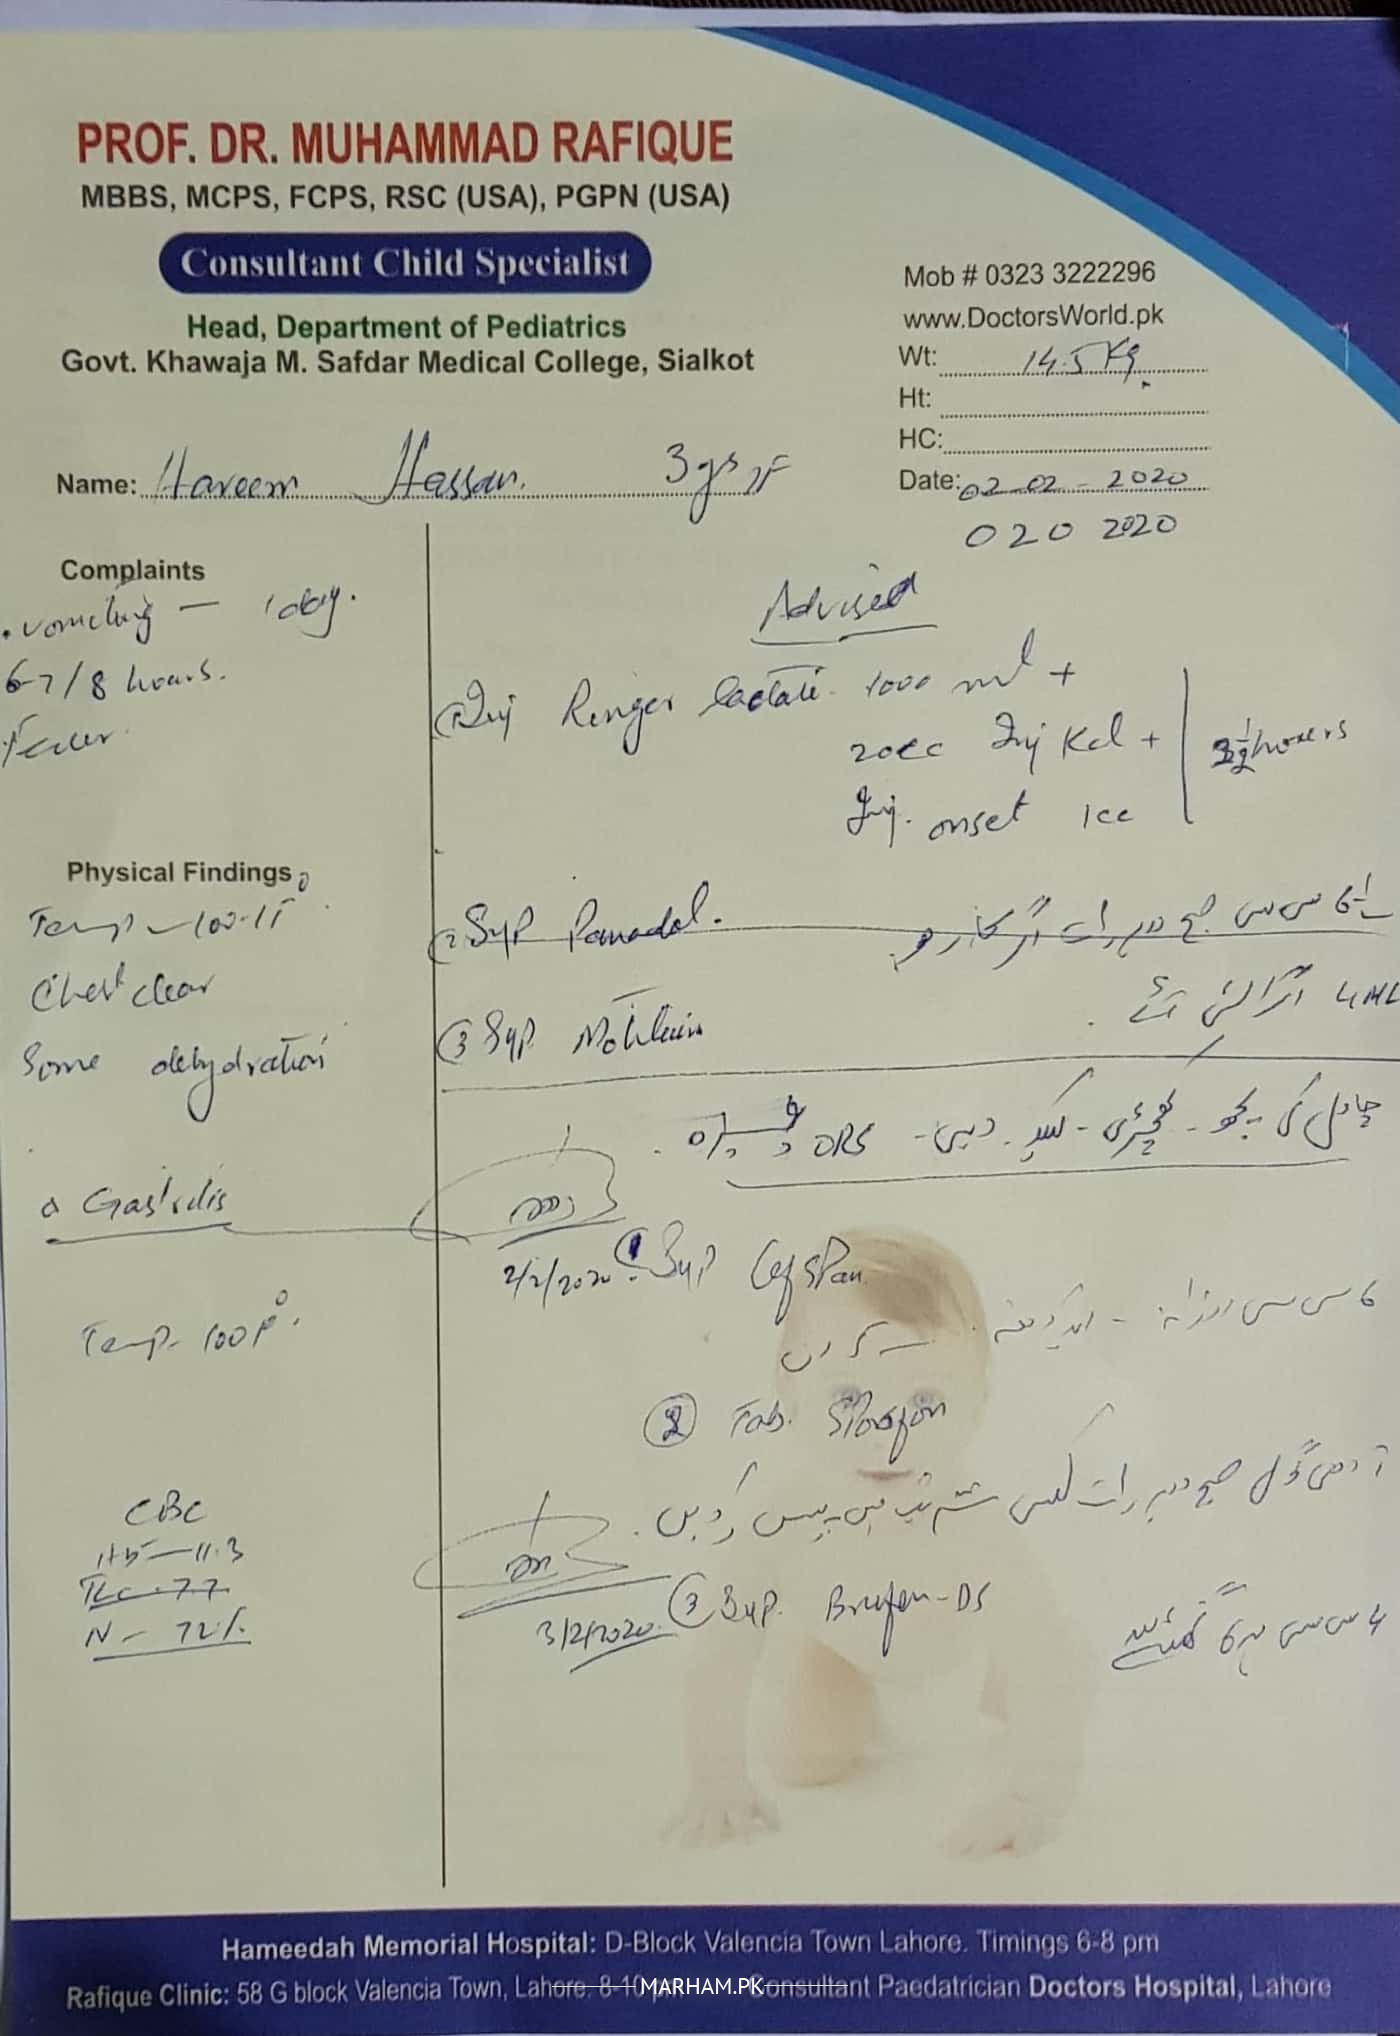 PROF. DR. MUHAMMAD RAFIQUE
MBBS, MCPS, FCPS, RSC (USA), PGPN (USA)
Consultant Child Specialist
Head, Department of Pediatrics
Govt. Khawaja M. Safdar Medical College, Sialkot
Mob # 0323 3222296
www.DoctorsWorld.pk
Wt: 14.5 Kg.
Ht:
HC:
Date: 02-02-2020
020 2020
Name: Hareem Hassan. 3 yrs F
Complaints
. vomiting — 1 day.
6-7/8 hours.
Fever.
Physical Findings
Temp - 100.1F
Chest clear
Some dehydration
Gastritis
Temp. 100F°.
CBC
Hb — 11.3
TLC - 7.7
N - 72%
Advised
① Inj Ringer lactate 1000 ml +
20cc Inj Kcl +
Inj. onset 1cc
hours
② Syp Panadol.
سی سی صبح دوپہر رات اگر بخار ہو
③ Syp. Motilium
4 ML اگر الٹی آئے
چاول کی پیچھ - کھچڑی - کیلا - دہی - ORS وغیرہ
2/2/2020
① Syp Cefspan
۶ سی سی روزانہ - ایک دفعہ
② Tab.
آدھی گولی صبح دوپہر رات میں پیس کر دیں
3/2/2020
③ Syp. Brufen-DS
سی سی ہر ۶ گھنٹے
Hameedah Memorial Hospital: D-Block Valencia Town Lahore. Timings 6-8 pm
Rafique Clinic: 58 G block Valencia Town, Lahore. 8-10 pm Consultant Paedatrician Doctors Hospital, Lahore
MARHAM.PK